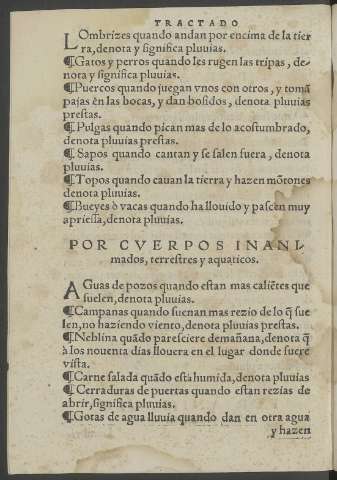 TRACTADO
LOmbrizes quando andan por encima de la tier
ra, denota y significa pluuias.
¶Gatos y perros quando les rugen las tripas, de-
nota y significa pluuias.
¶Puercos quando juegan vnos con otros, y tomã
pajas ẽn las bocas, y dan bofidos, denota pluuias
prestas.
¶Pulgas quando pican mas de lo acostumbrado,
denota pluuias prestas.
¶Sapos quando cantan y se salen fuera, denota
pluuias.
¶Topos quando cauan la tierra y hazen mõtones
denota pluuias.
¶Bueyes ò vacas quando ha llouido y pascen muy
apriessa, denota pluuias.
POR CVERPOS INANI-
mados, terrestres y aquaticos.
AGuas de pozos quando estan mas caliẽtes que
suelen, denota pluuias.
¶Campanas quando suenan mas rezio de lo q̃ sue
len, no haziendo viento, denota pluuias prestas.
¶Neblina quãdo paresciere demañana, denota q̃
à los nouenta dias llouera en el lugar donde fuere
vista.
¶Carne salada quãdo està humida, denota pluuias
¶Cerraduras de puertas quando estan rezias de
abrir, significa pluuias.
¶Gotas de agua lluuia quando dan en otra agua
y hazen